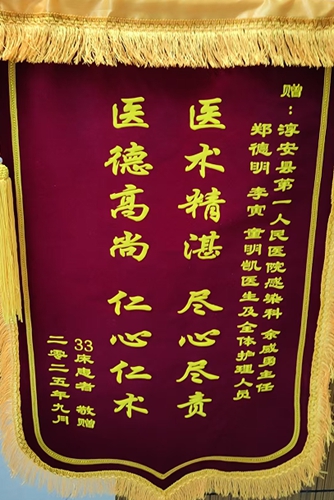 赠：淳安县第一人民医院感染科 余威勇主任
郑德明 李寅 童明凯医生及全体护理人员
医术精湛 尽心尽责
医德高尚 仁心仁术
33床患者 敬赠
二零二五年九月